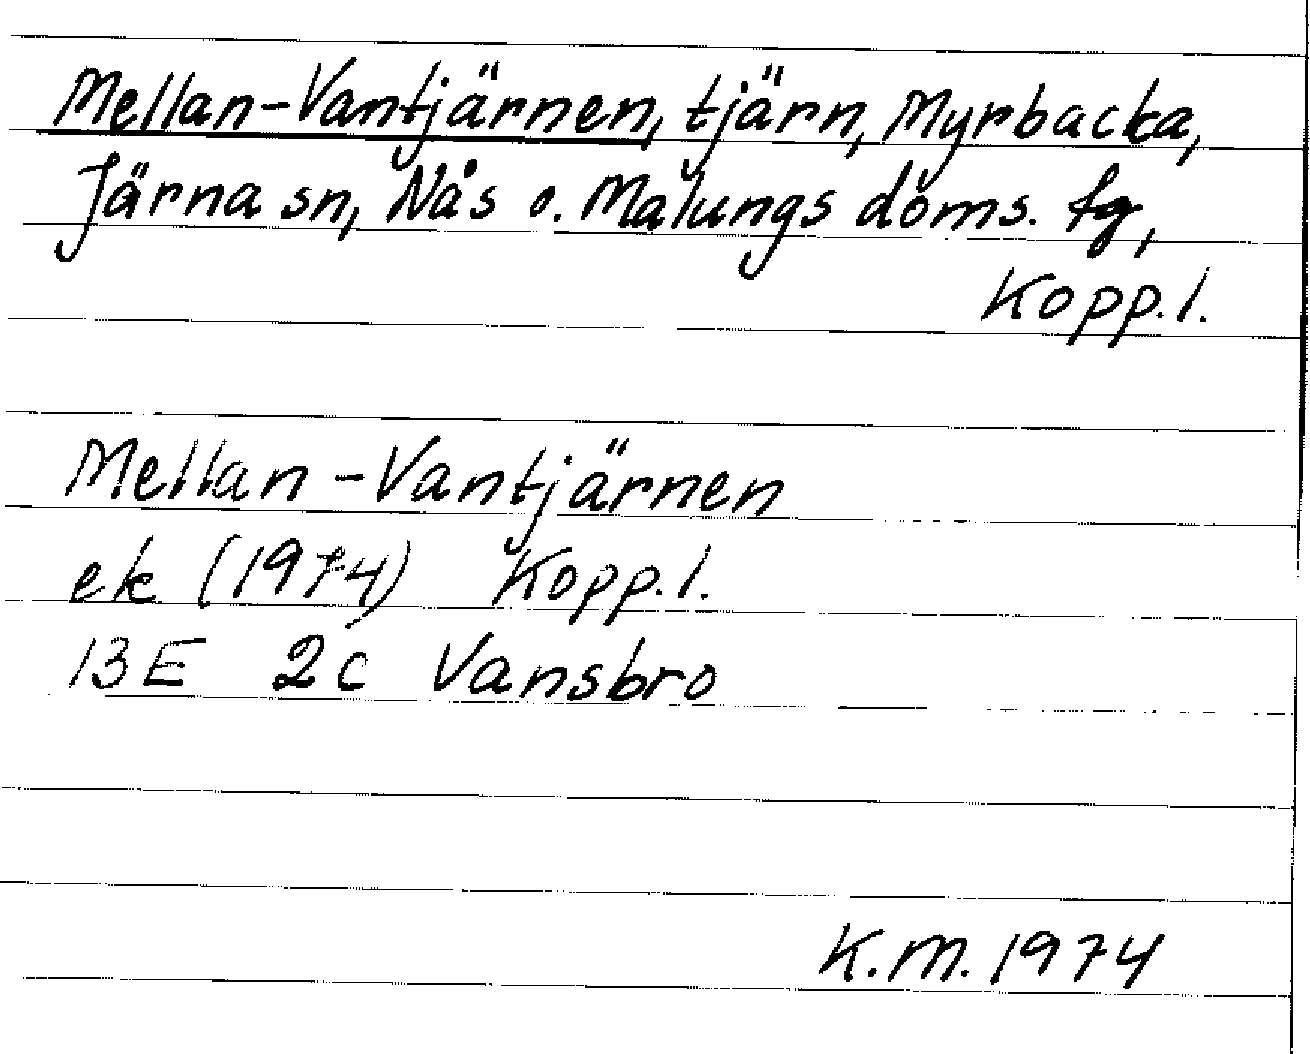 Mellan-Vantjärnen, tjärn, Myrbacka,
Järna sn, Nås o. Malungs doms. tg,
Kopp.l.
Mellan-Vantjärnen
ek (1974) Kopp.l.
13E 2c Vansbro
K.M. 1974